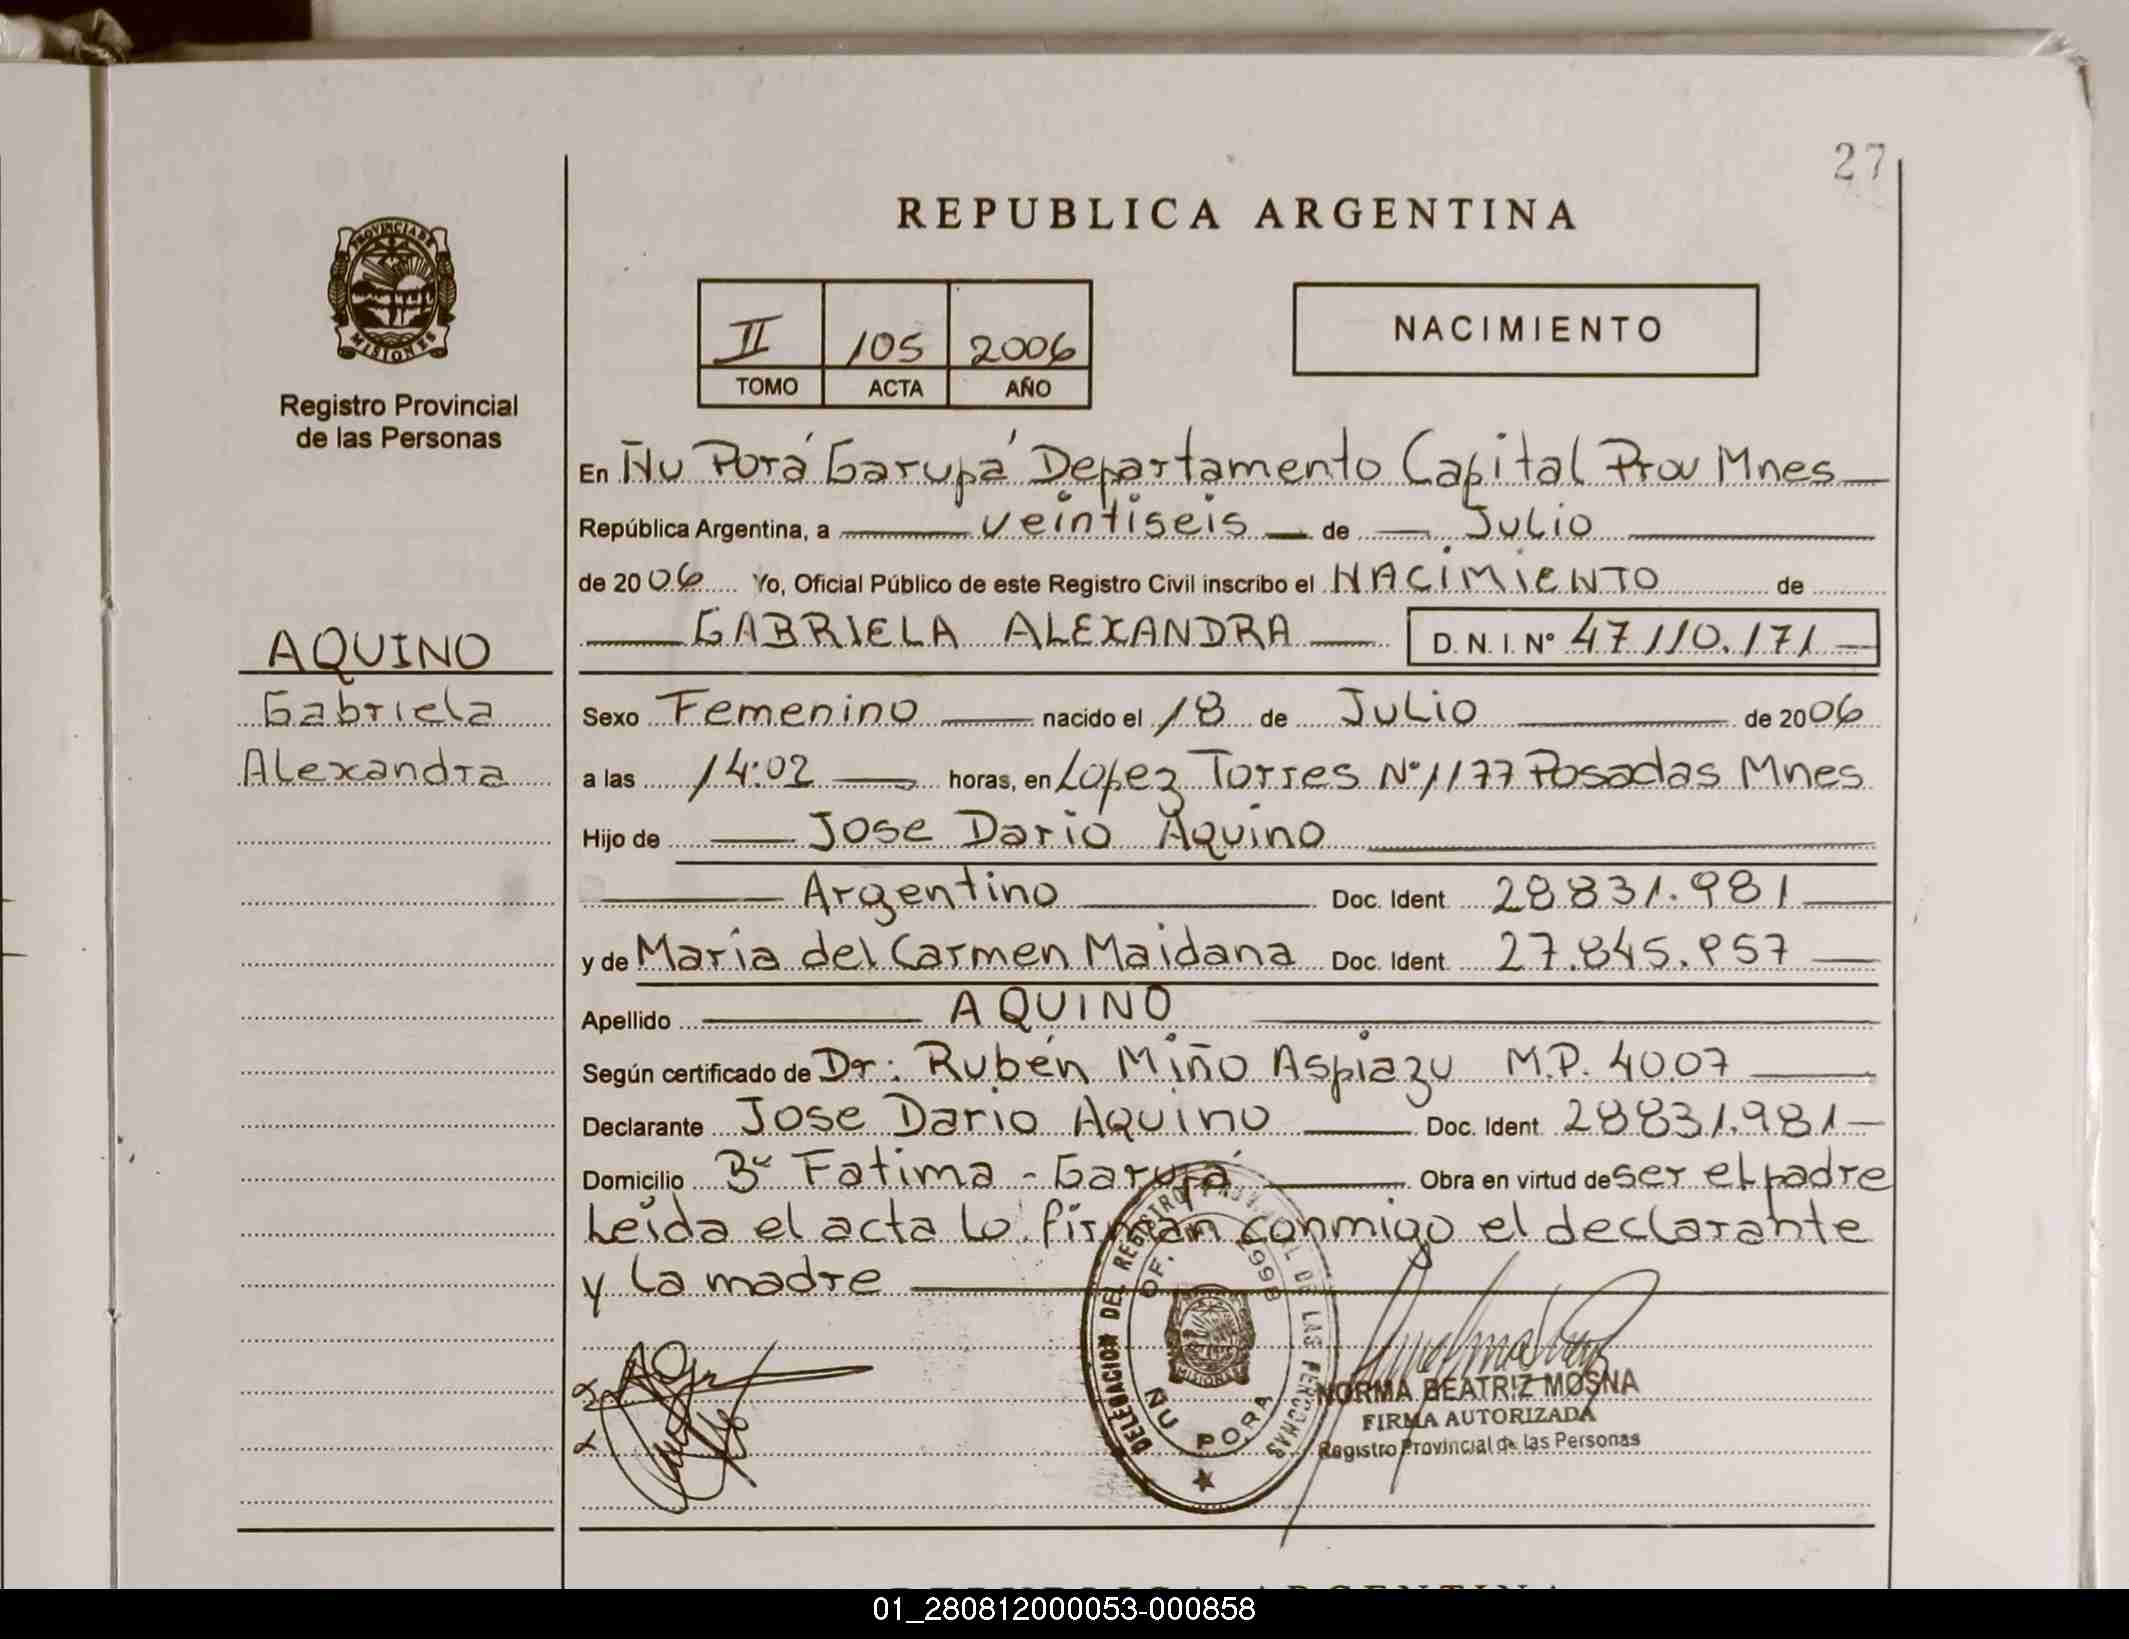 27
REPUBLICA ARGENTINA
PROVINCIA DE
MISIONES
Registro Provincial
de las Personas
II 105 2006
TOMO ACTA AÑO
NACIMIENTO
En Ñu Porá Garupá Departamento Capital Prov Mnes
República Argentina, a veintiseis de Julio
de 2006 Yo, Oficial Público de este Registro Civil inscribo el NACIMIENTO de
GABRIELA ALEXANDRA D.N.I. Nº 47110.171
AQUINO
Gabriela
Alexandra
Sexo Femenino nacido el 18 de Julio de 2006
a las 14:02 horas, en Lopez Torres Nº1177 Posadas Mnes
Hijo de Jose Dario Aquino
Argentino Doc. Ident 28831.981
y de María del Carmen Maidana Doc. Ident. 27.845.957
Apellido AQUINO
Según certificado de Dr: Rubén Miño Aspiazu M.P. 4007
Declarante Jose Dario Aquino Doc. Ident. 28831.981
Domicilio Bº Fatima - Garupá Obra en virtud de ser el padre
Leida el acta lo firman conmigo el declarante
y la madre
DELEGACION DEL REGISTRO PROVINCIAL DE LAS PERSONAS
OF. 2998
MISIONES
ÑU PORA
NORMA BEATRIZ MOSNA
FIRMA AUTORIZADA
Registro Provincial de las Personas
REPUBLICA ARGENTINA
01_280812000053-000858